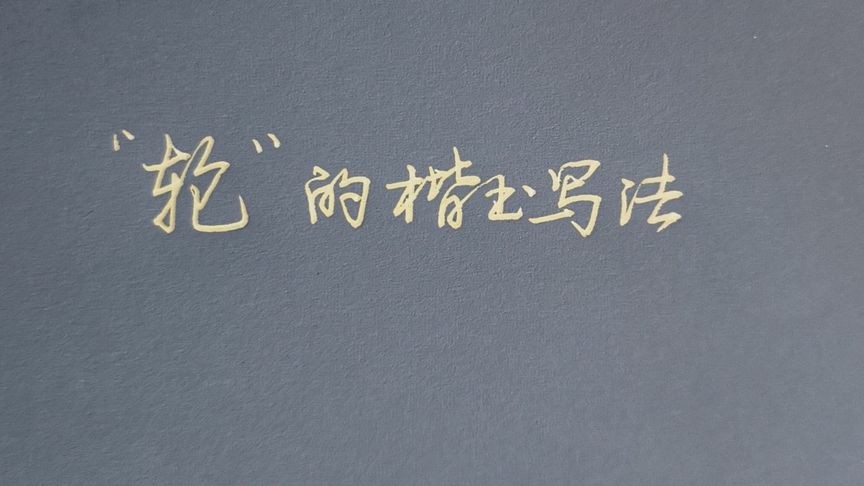 “轮”的楷书写法